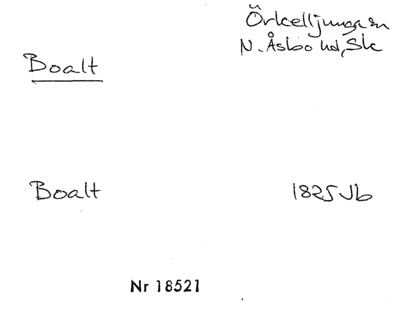 Örkelljunga sn
N. Åsbo hd, Sk
Boalt
Boalt 1825 Jb
Nr 18521